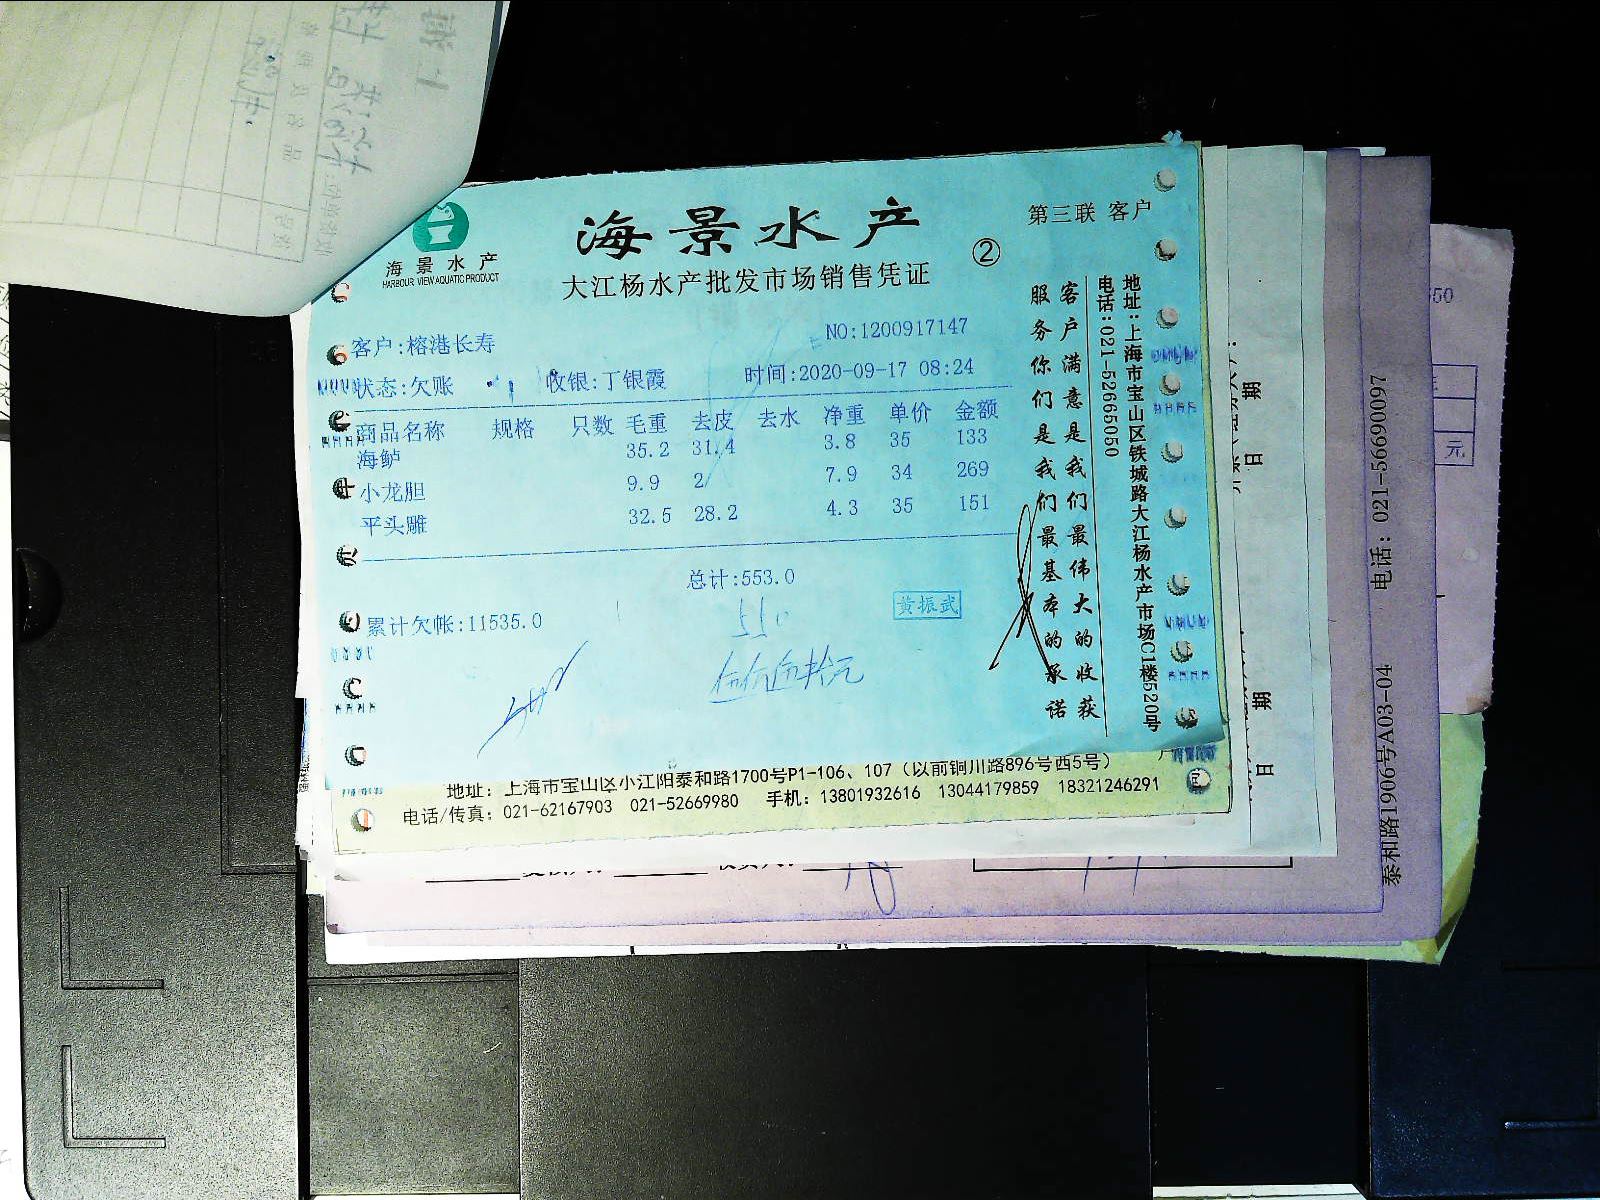 海景水产
HARBOUR VIEW AQUATIC PRODUCT
海景水产
大江杨水产批发市场销售凭证
②
第三联 客户
NO:1200917147
客户:榕港长寿
状态:欠账 收银:丁银霞 时间:2020-09-17 08:24
商品名称 规格 只数 毛重 去皮 去水 净重 单价 金额
海鲈 35.2 31.4 3.8 35 133
小龙胆 9.9 2 7.9 34 269
平头雕 32.5 28.2 4.3 35 151
总计:553.0
累计欠帐:11535.0
黄振武
550
伍佰伍拾元
客户满意是我们最伟大的收获
服务你们是我们最基本的承诺
地址:上海市宝山区铁城路大江杨水产市场C1楼520号
电话:021-52665050
地址：上海市宝山区小江阳泰和路1700号P1-106、107（以前铜川路896号西5号）
电话/传真：021-62167903 021-52669980 手机：13801932616 13044179859 18321246291
日期
日期
泰和路1906号A03-04 电话：021-56690097
元